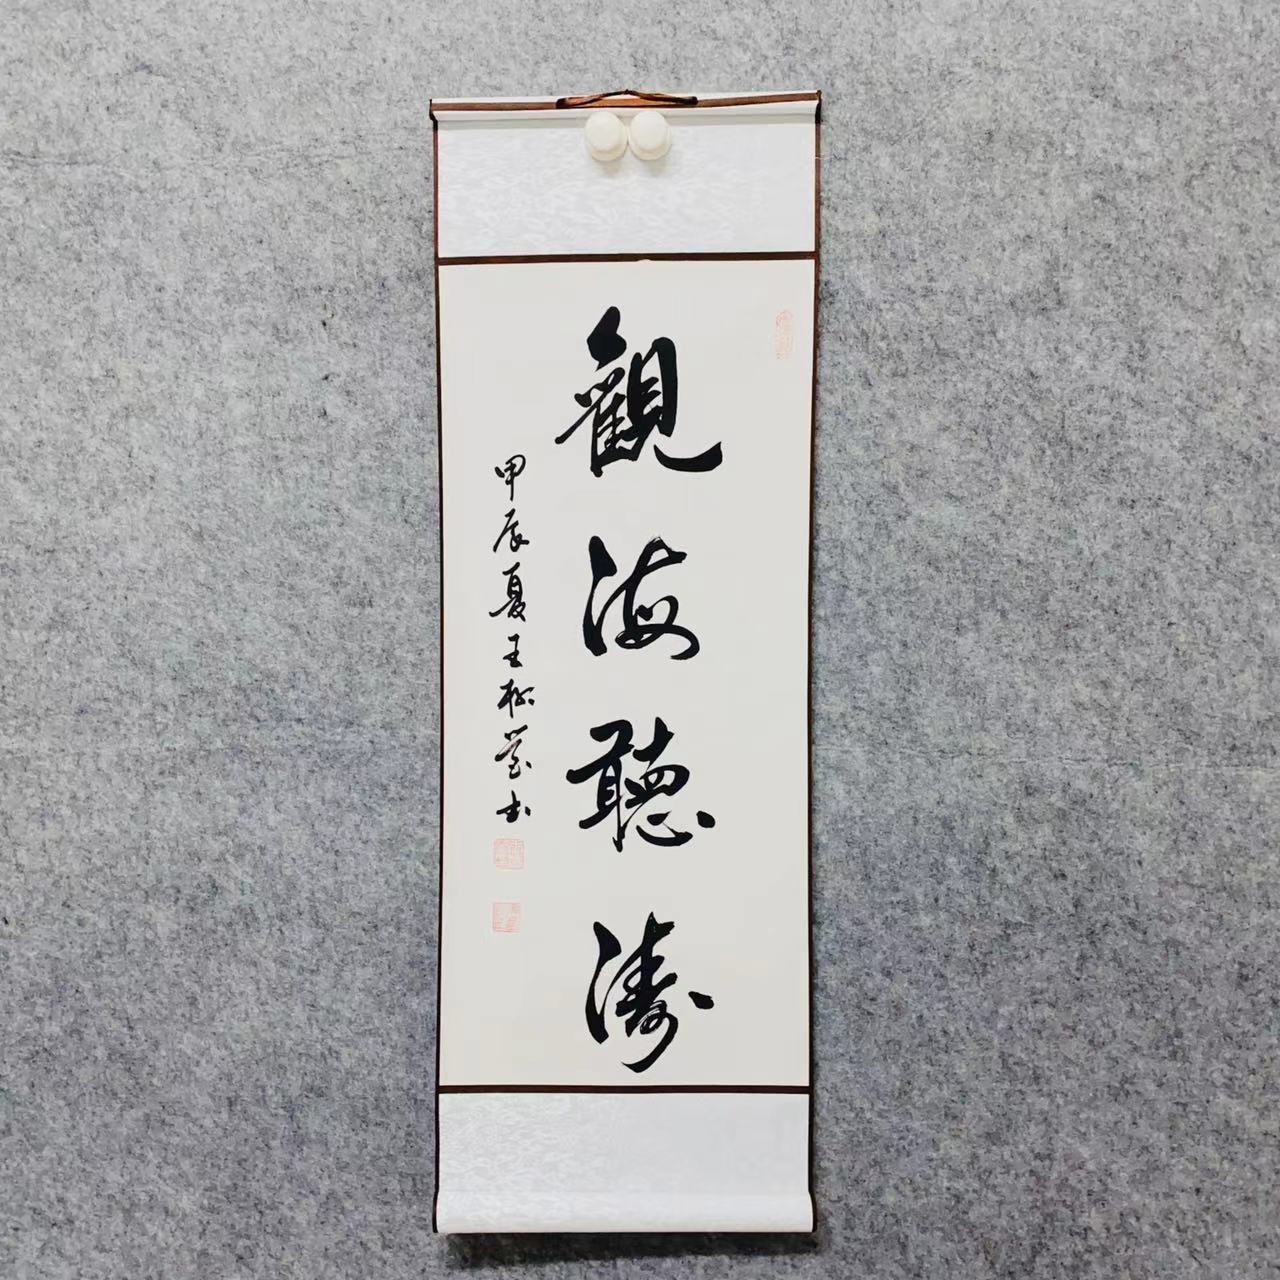 觀海聽濤
甲辰夏王柳莹书